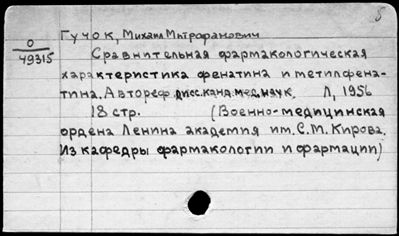 5
Гучок, Михаил Митрофанович
О
49315
Сравнительная фармакологическая
характеристика фенатина и метилфена-
тина. Автореф. дисс. канд. мед. наук. Л, 1956
18 стр. (Военно-медицинская
ордена Ленина академия им. С.М. Кирова.
Из кафедры фармакологии и фармации)